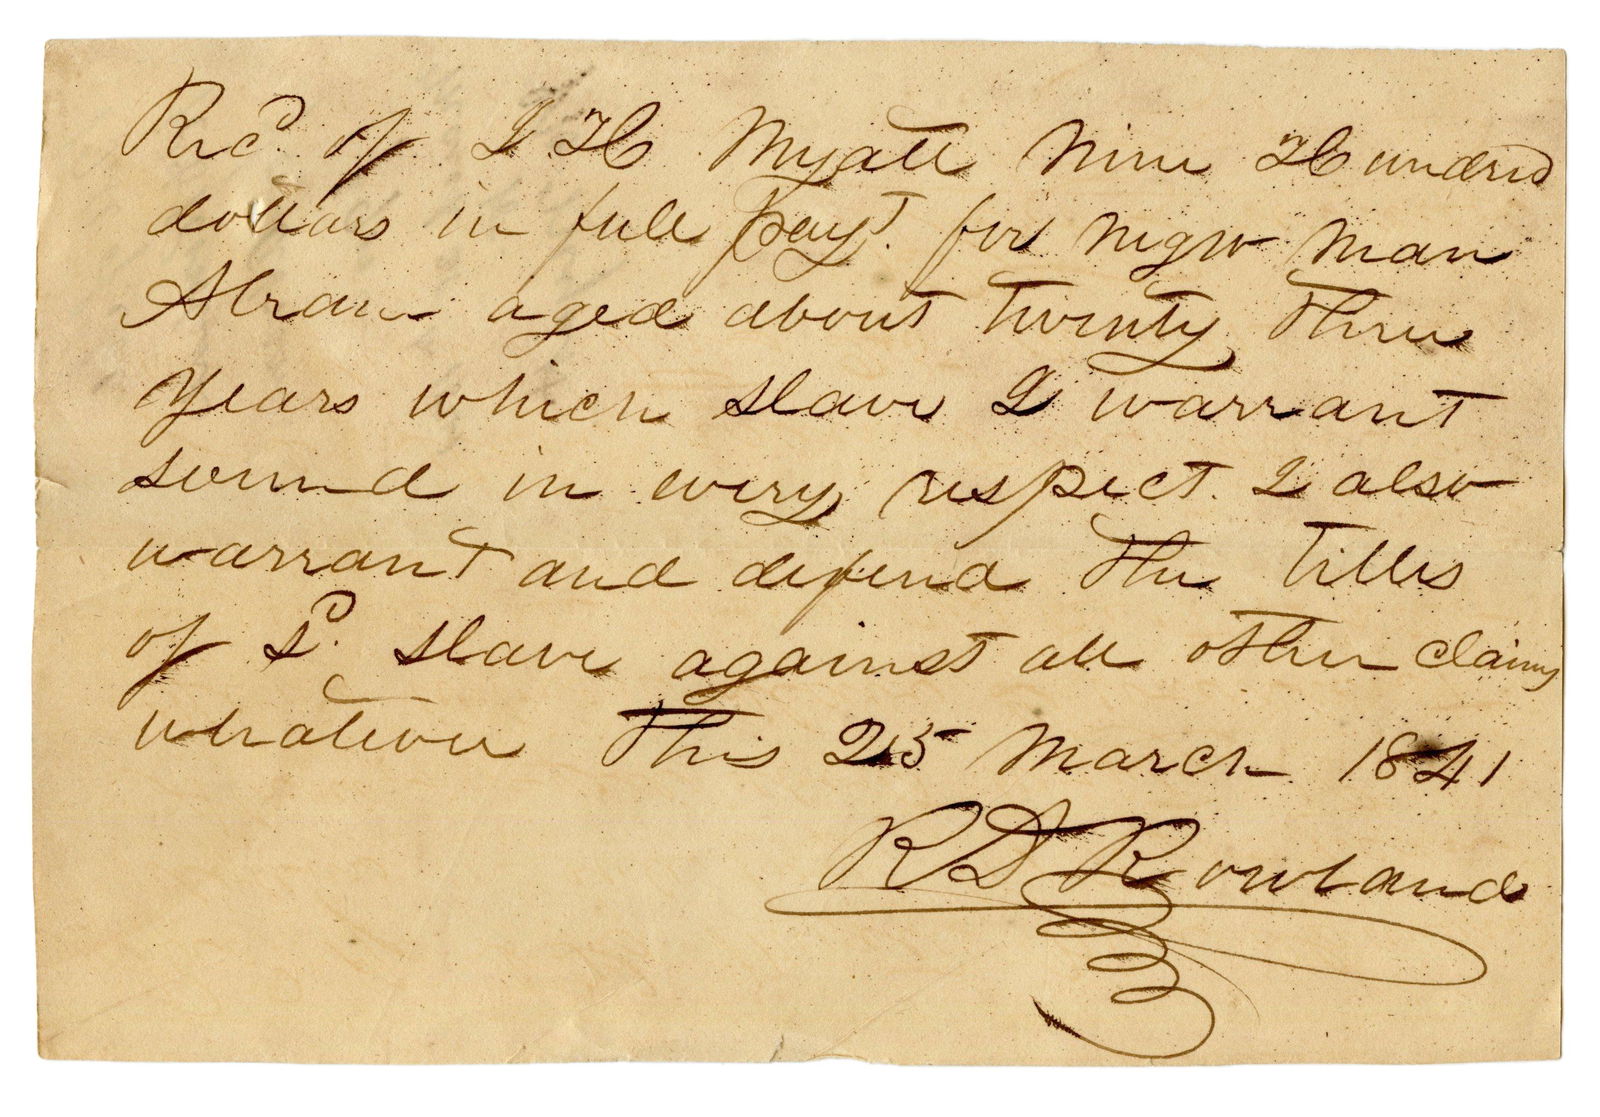 Recd. of J. H. Myatt Nine Hundred
dollars in full payt. for negro man
Abram aged about Twenty Three
Years which slave I warrant
sound in every respect. I also
warrant and defend the titles
of sd. slave against all other claims
whatever This 25 March 1841
R D Rowland